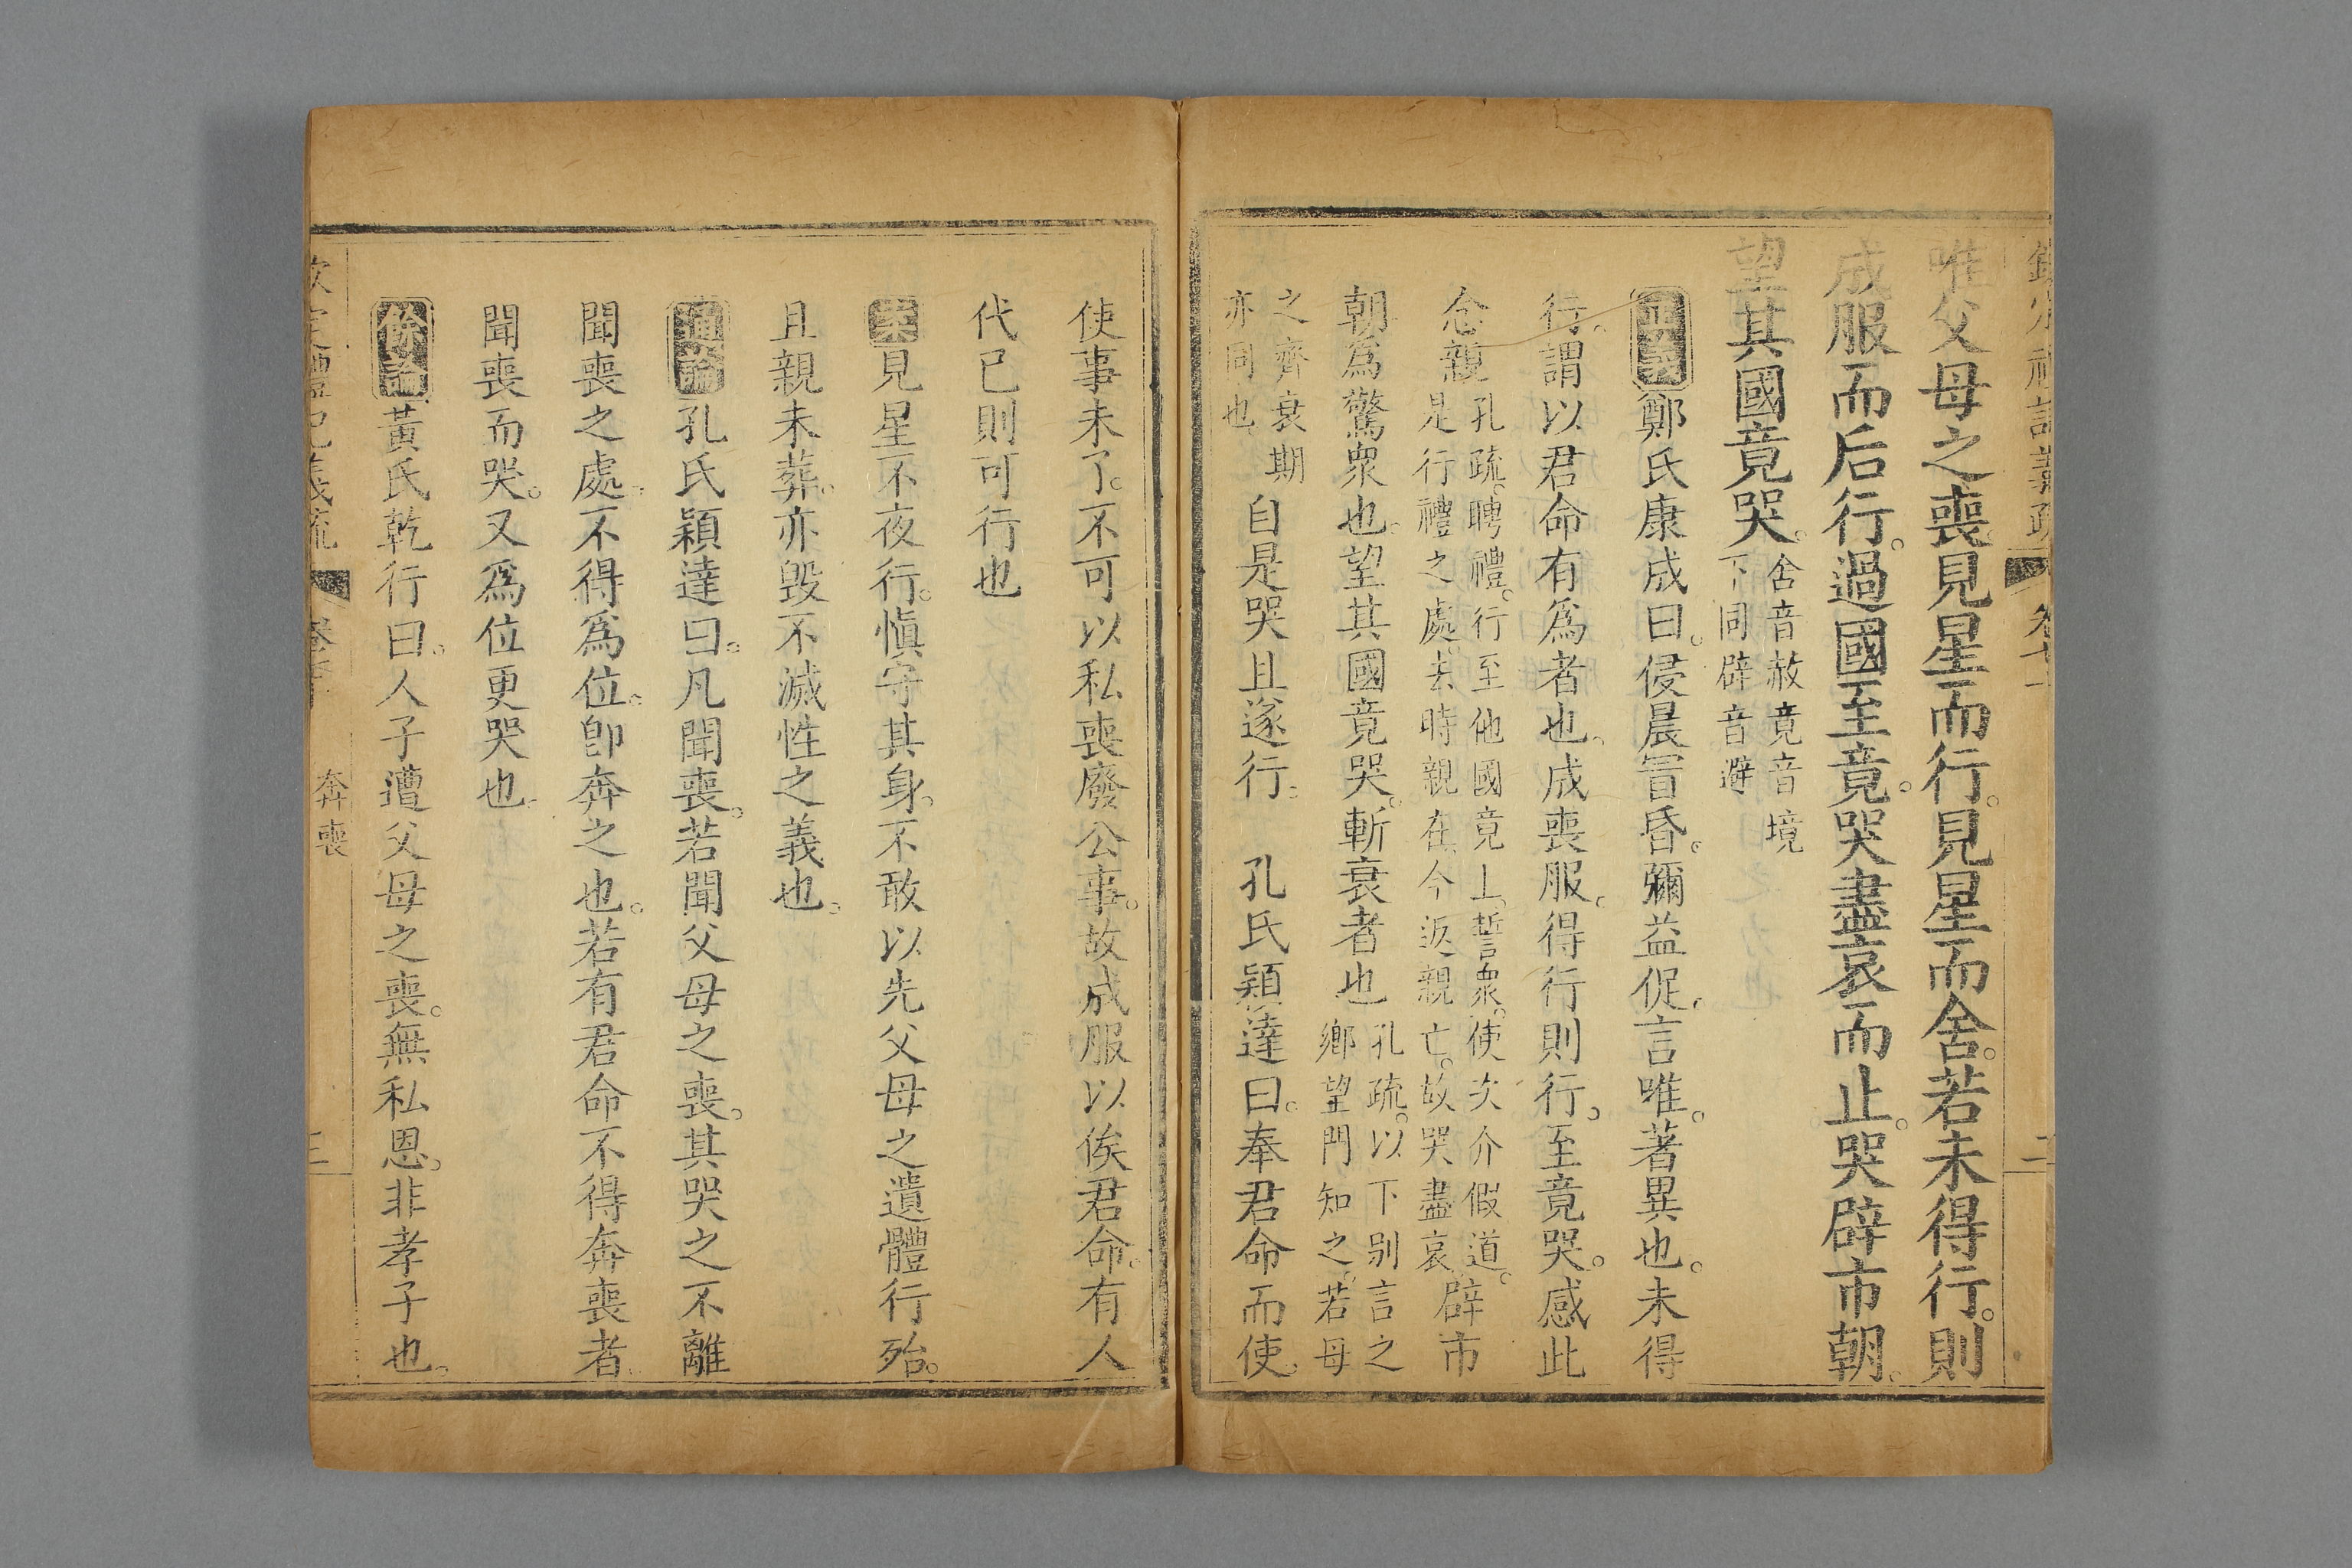 唯父母之喪見星而行。見星而舍。若未得行。則
成服而后行。過國至竟。哭盡哀而止。哭辟市朝。
望其國竟哭。舍音赦竟音境
下同辟音避
正義鄭氏康成曰。侵晨冒昏。彌益促。言唯。著異也。未得
行。謂以君命有爲者也。成喪服。得行則行。至竟哭。感此
念親孔疏。聘禮。行至他國竟上。誓衆。使次介假道。
是行禮之處。去時親在。今返親亡。故哭盡哀。辟市
朝。爲驚衆也。望其國竟哭。斬衰者也孔疏。以下别言之
鄉望門知之。若母
之齊衰期
亦同也自是哭且遂行。 孔氏穎達曰。奉君命而使。
使事未了。不可以私喪廢公事。故成服以俟君命。有人
代已則可行也
案見星不夜行。慎守其身。不敢以先父母之遺體行殆。
且親未葬。亦毀不滅性之義也。
通論孔氏穎達曰。凡聞喪。若聞父母之喪。其哭之不離
聞喪之處。不得爲位。卽奔之也。若有君命不得奔喪者。
聞喪而哭。又爲位更哭也。
餘論黃氏乾行曰。人子遭父母之喪。無私恩。非孝子也。
奔喪